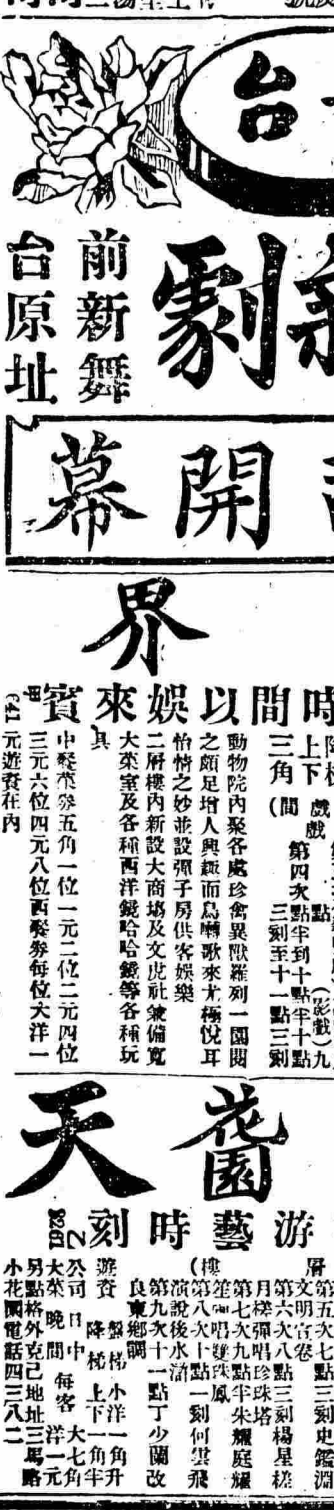 台
新劇
前新舞
台原址
開幕
界
時間以娛來賓
三角
上下
(間
戲
第四次
點半到十點半十點
三刻至十一點三刻
(影戲)九
動物院內聚各處珍禽異獸羅列一園閱
之頗足增人興趣而鳥囀歌來尤極悅耳
怡情之妙並設彈子房供客娛樂
二層樓內新設大商塲及文虎社兼備寬
大菜室及各種西洋鏡哈哈鏡等各種玩
具
中餐菜券五角一位一元二位二元四位
三元六位四元八位西餐券每位大洋一
元遊資在內
天
花園
游藝時刻
層
第五次七點三刻史鑑淵
文明宣卷
第六次八點三刻楊星槎
月槎彈唱珍珠塔
第七次九點半朱耀庭耀
笙彈唱雙珠鳳
(樓
第八次十點一刻何雲飛
演說後水滸
第九次十一點丁少蘭改
良東鄉調
遊資
盤梯小洋一角升
降梯上下一角半
公司
大菜
日中
晚間
每客
大七角
洋一元
另點格外克己地址三馬路
小花園電話四三八二